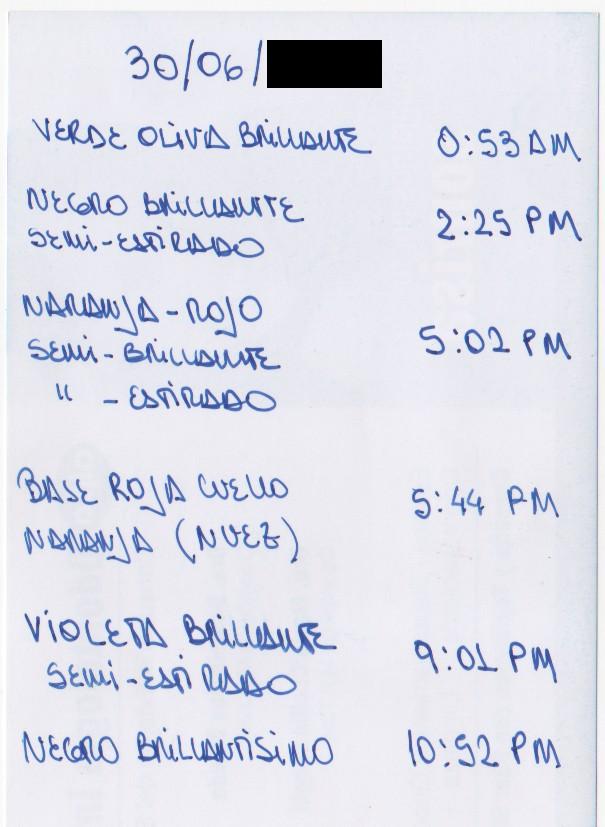 30/06/
VERDE OLIVA BRILLANTE 0:53 AM
NEGRO BRILLANTE
SEMI-ESTIRADO 2:25 PM
NARANJA-ROJO
SEMI-BRILLANTE 5:02 PM
" -ESTIRADO
BASE ROJA CUELLO 5:44 PM
NARANJA (NUEZ)
VIOLETA BRILLANTE
SEMI-ESTIRADO 9:01 PM
NEGRO BRILLANTÍSIMO 10:52 PM